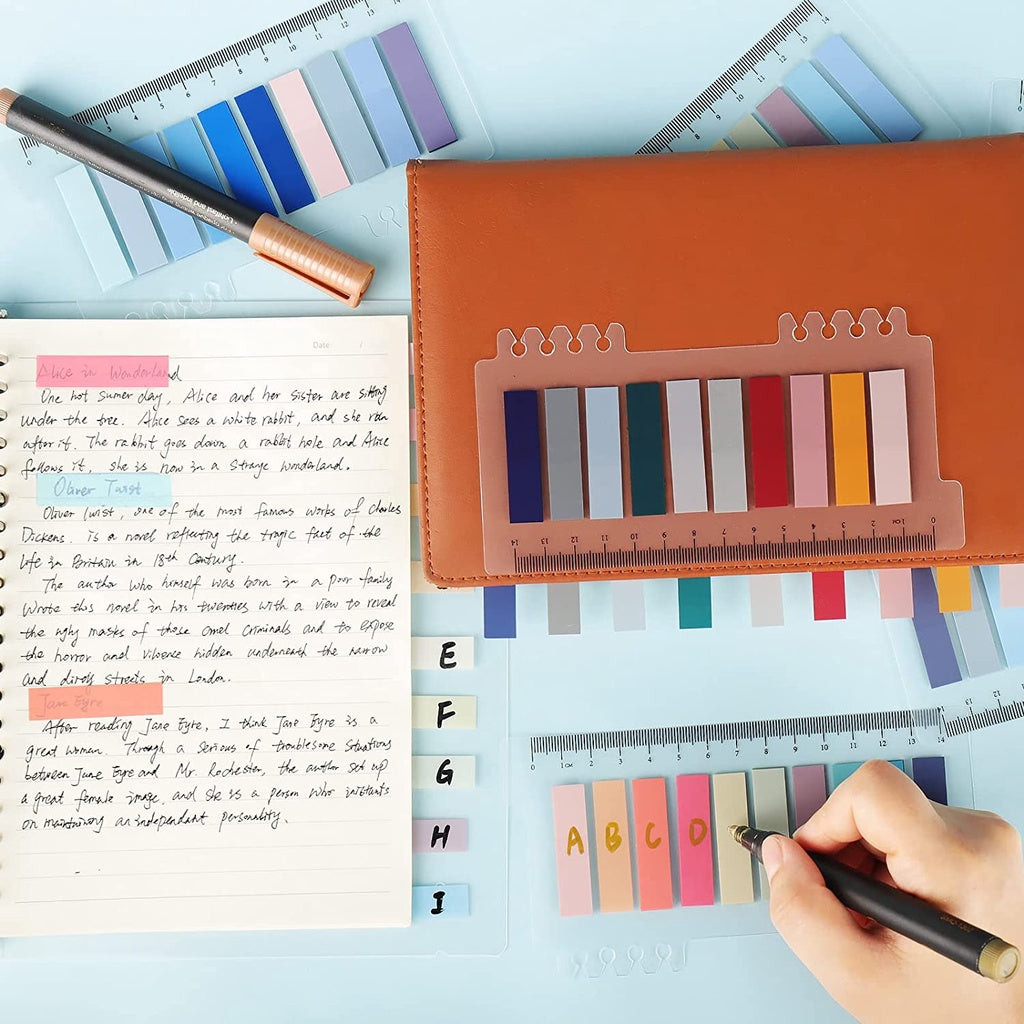 Date: /
Alice in Wonderland
One hot sumer day, Alice and her sister are sitting
under the tree. Alice sees a white rabbit, and she ran
after it. The rabbit goes down a rabbit hole and Alice
follows it, she is now in a strange wonderland.
Oliver Twist
Oliver Twist, one of the most famous works of Charles
Dickens, is a novel reflecting the tragic fact of the
life in Britain in 18th Century.
The author who himself was born in a poor family
wrote this novel in his twenties with a view to reveal
the ugly masks of those cruel criminals and to expose
the horror and violence hidden underneath the narrow
and dirty streets in London.
Jane Eyre
After reading Jane Eyre, I think Jane Eyre is a
great woman. Through a serious of troublesome situations
between Jane Eyre and Mr. Rochester, the author set up
a great female image, and she is a person who insistants
on maintaining an independant personality.
E
F
G
H
I
14 13 12 11 10 9 8 7 6 5 4 3 2 1CM 0
0 1CM 2 3 4 5 6 7 8 9 10 11 12 13 14
A B C D